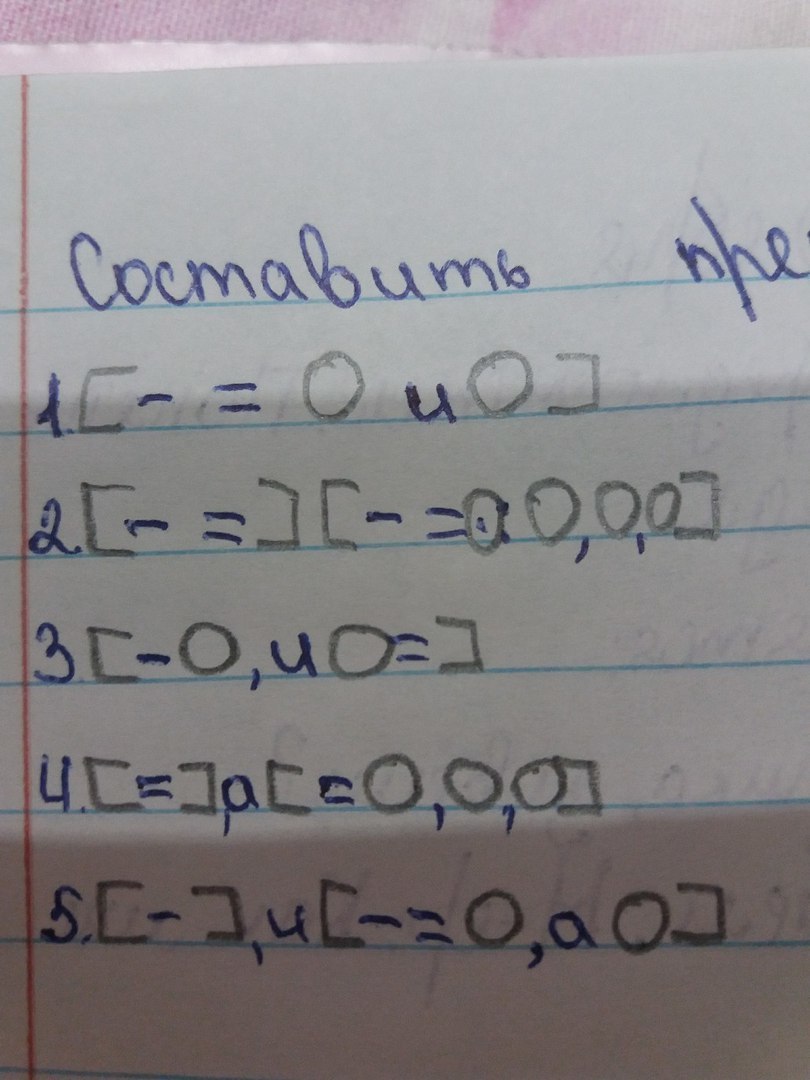 Составить пре
1. [- = O и O]
2. [- =] [- = O: O, O, O]
3. [- O, и O =]
4. [=], а [= O, O, O]
5. [-], и [- = O, а O]